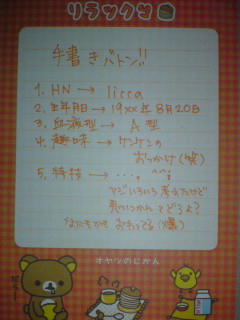 リラックマ
手書きバトン!!
1. HN → licca
2. 生年月日 → 19xx年8月20日
3. 血液型 → A型
4. 趣味 → ケンケンの
おっかけ(笑)
5. 特技 → ・・・。
マジいろいろ考えたけど
見つかんねってどうよ?
おわってる(爆)
オヤツのじかん